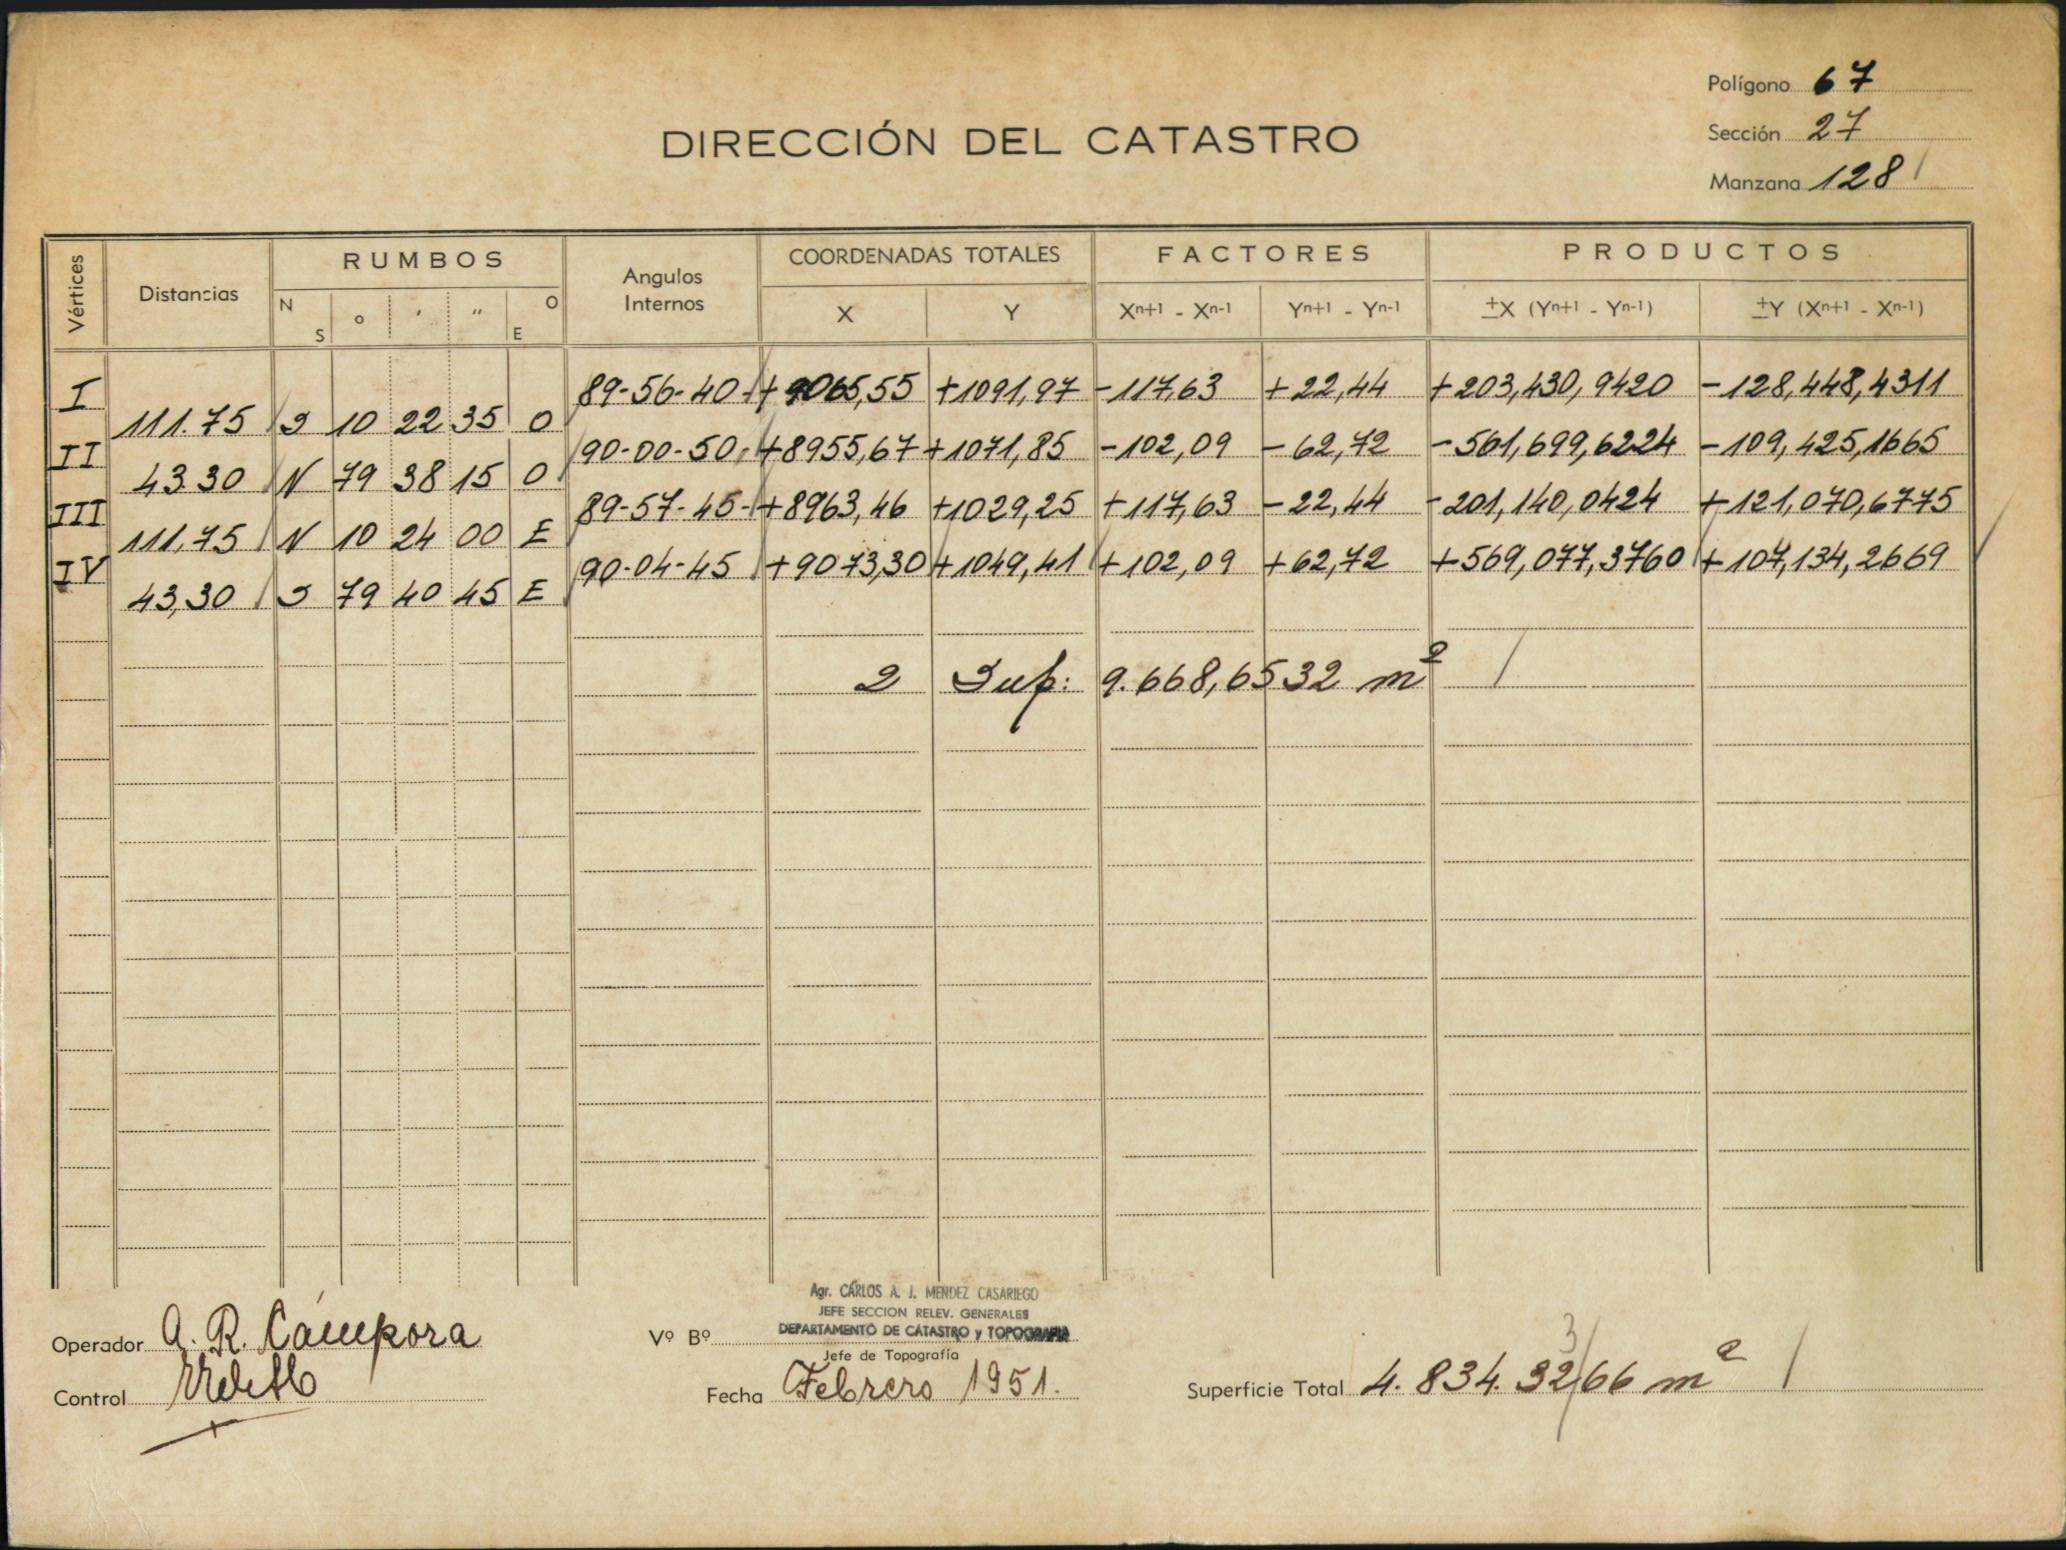 Polígono 67
DIRECCIÓN DEL CATASTRO
Sección 27
Manzana 128
Vértices Distancias RUMBOS Angulos Internos COORDENADAS TOTALES FACTORES PRODUCTOS
N S ° ' " O E X Y Xn+1 - Xn-1 Yn+1 - Yn-1 ±X (Yn+1 - Yn-1) ±Y (Xn+1 - Xn-1)
I 89-56-40 +9065,55 +1091,97 -117,63 +22,44 +203,430,9420 -128,448,4311
111.75 S 10 22 35 O
II 90-00-50 +8955,67 +1071,85 -102,09 -62,72 -561,699,6224 -109,425,1665
43.30 N 79 38 15 O
III 89-57-45 +8963,46 +1029,25 +117,63 -22,44 -201,140,0424 +121,070,6775
111,75 N 10 24 00 E
IV 90-04-45 +9073,30 +1049,41 +102,09 +62,72 +569,077,3760 +107,134,2669
43,30 S 79 40 45 E
2 Sup: 9.668,6532 m2
Agr. CARLOS A. J. MENDEZ CASARIEGO
JEFE SECCION RELEV. GENERALES
DEPARTAMENTO DE CATASTRO y TOPOGRAFIA
Operador A. R. Cámpora Vº Bº
Jefe de Topografía
3
Control Fecha Febrero 1951. Superficie Total 4.834.3266 m2